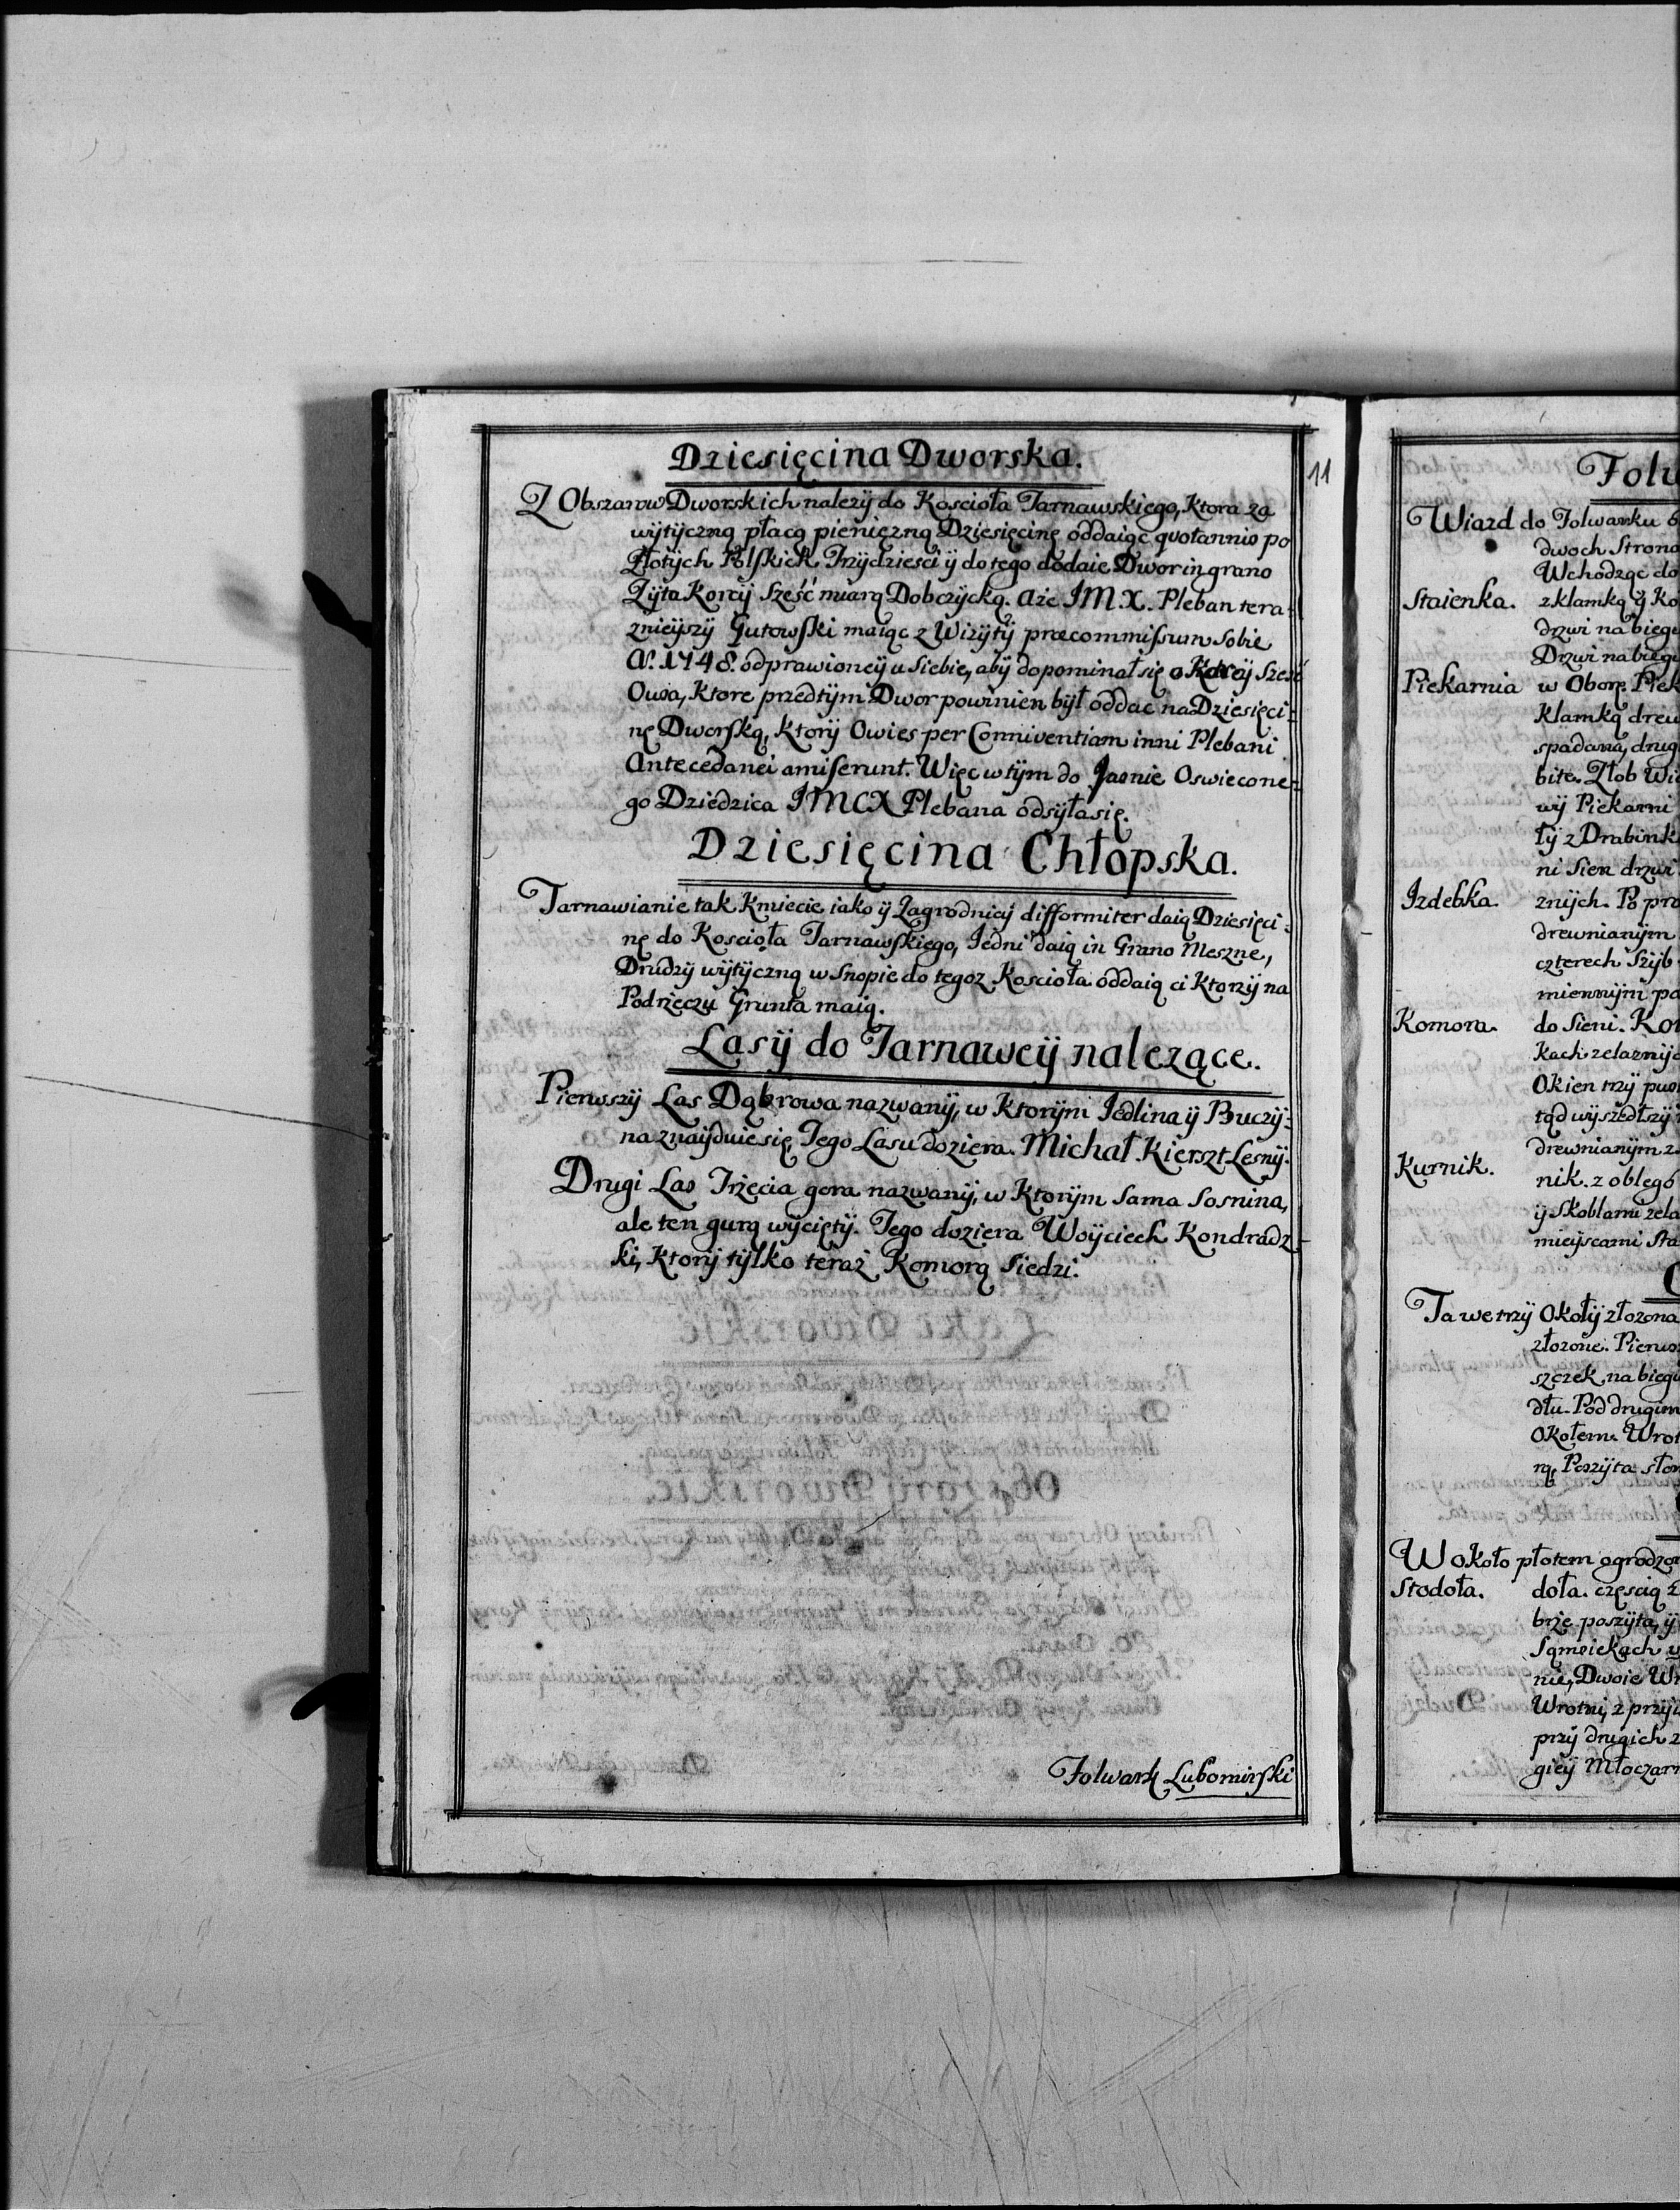 Dziesięcina Dworska.
11
Z Obszarow Dworskich nalezÿ do Koscioła Tarnawskiego, Ktora za
wÿtÿczną płacą pienięzną Dziesięcinę oddaiąc quotannis po
Złotÿch Polskich Trzÿdziesci ÿ do tego dodaie Dwor in grano
Zÿta Korcÿ Sześć miarą Dobczÿcką. aże IM.X. Pleban tera=
znieÿszÿ Gutowski maiąc z Wizÿtÿ præcommissum sobie
A°. 1748. odprawioneÿ u siebie, abÿ dopominał się o Korcÿ Szesć
Owsa, Ktore przedtÿm Dwor powinien bÿł oddac na Dziesięci=
nę Dworską, Ktorÿ Owies per Conniventiam inni Plebani
Antecedanei amiserunt. Więc w tÿm do Jasnie Oswiecone=
go Dziedzica IMCX Plebana odsÿła się.
Dziesięcina Chłopska.
Tarnawianie tak Kmiecie iako ÿ Zagrodnicÿ difformiter daią Dziesięci=
nę do Koscioła Tarnawskiego, Jedni daią in Grano Meszne,
Drudzÿ wÿtÿczną w Snopie do tegoz Koscioła oddaią ci Ktorzÿ na
Podrzeczu Grunta maią.
Lasÿ do Tarnaweÿ nalezące.
Pierwszÿ Las Dąbrowa nazwanÿ, w Ktorÿm Jedlina ÿ Buczÿ=
na znaÿduie się, Tego Lasu doziera Michał Kierszt Lesnÿ.
Drugi Las Trzecia gora nazwanÿ, w Ktorÿm Sama Sosnina,
ale ten gurą wÿcięty. Tego doziera Woÿciech Kondradz=
ki, Ktorÿ tÿlko teraz Komorą siedzi.
Folwark Lubomirski
Wiazd do Folwarku
dwoch Strona
Wchodząc do
Staienka. z klamką ÿ Ko
drzwi na biegu
Drzwi na biegu
Piekarnia w Oborę Piek
Klamką drew
spadana, drug
bite. Złob Wi
wÿ Piekarni
łÿ z Drabink
ni Sien drzwi
Izdebka. znÿch. Po pra
drewnianÿm
czterech Szÿb
miennÿm po
Komora. do Sieni. Ko
Kach zelaznÿc
Okien trzÿ
tąd wÿszedłszÿ
drewnianÿm z
Kurnik. nik. z oblego
ÿ Skoblami zela
mieÿscami Sta
Ta we trzÿ Okołÿ złozona
złozone. Pierws
szczek na biegu
dłu. Pod drugim
Okołem. Wrot
rą, Poszÿta słom
W około płotem ogrodzon
Stodoła. doła. częscią
brze poszÿta, ÿ
Sąmsiekach
nie, Dwoie Wr
Wrotni, z przÿ
przÿ drugich z
gieÿ Młoczarn